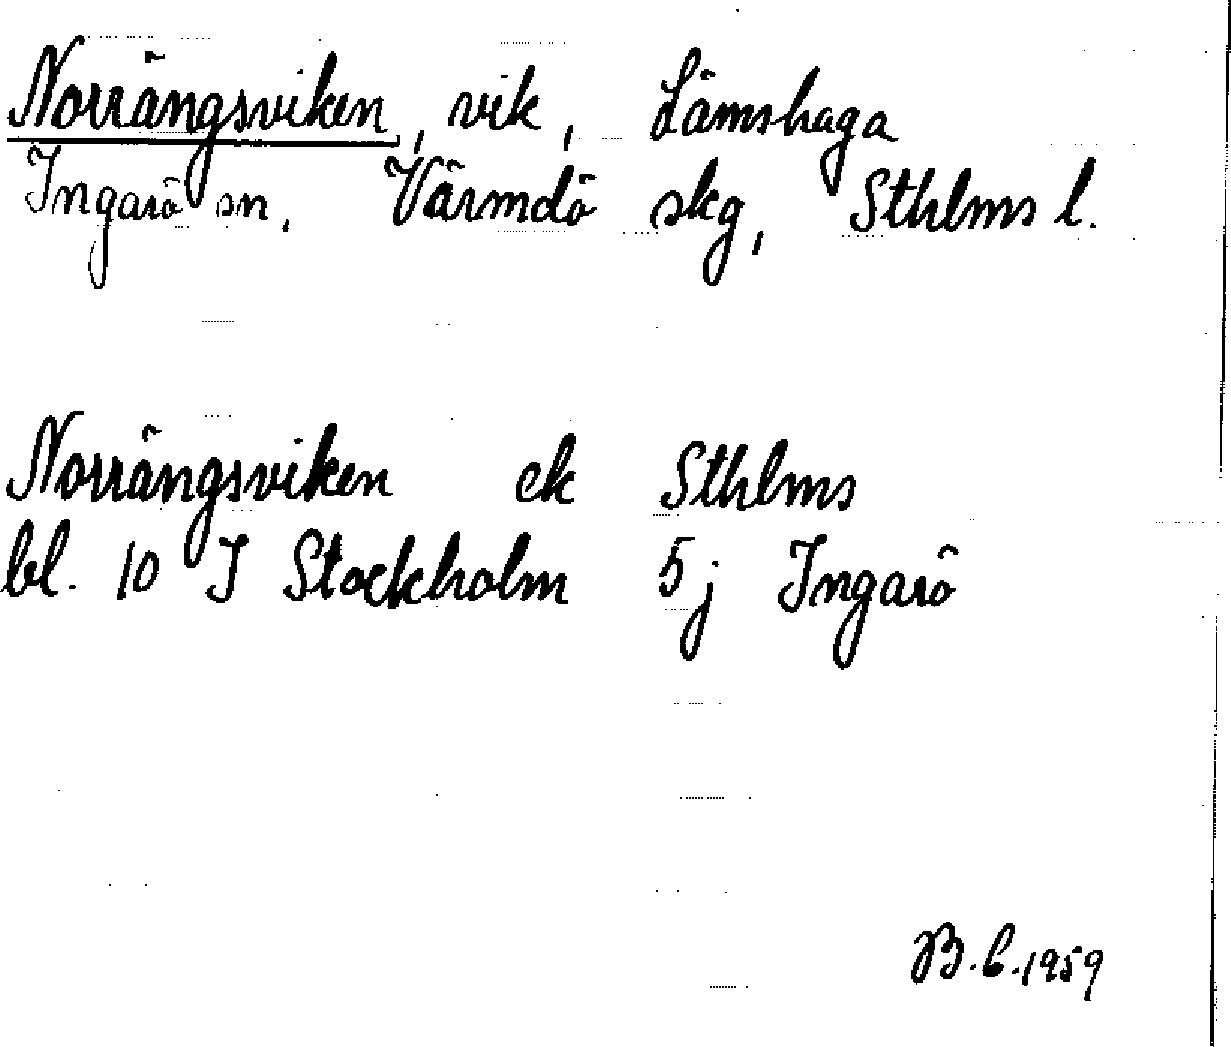 Norrängsviken, vik, Lämshaga
Ingarö sn, Värmdö skg, Sthlms l.
Norrängsviken ek Sthlms
bl. 10 I Stockholm 5j Ingarö
B.C. 1959